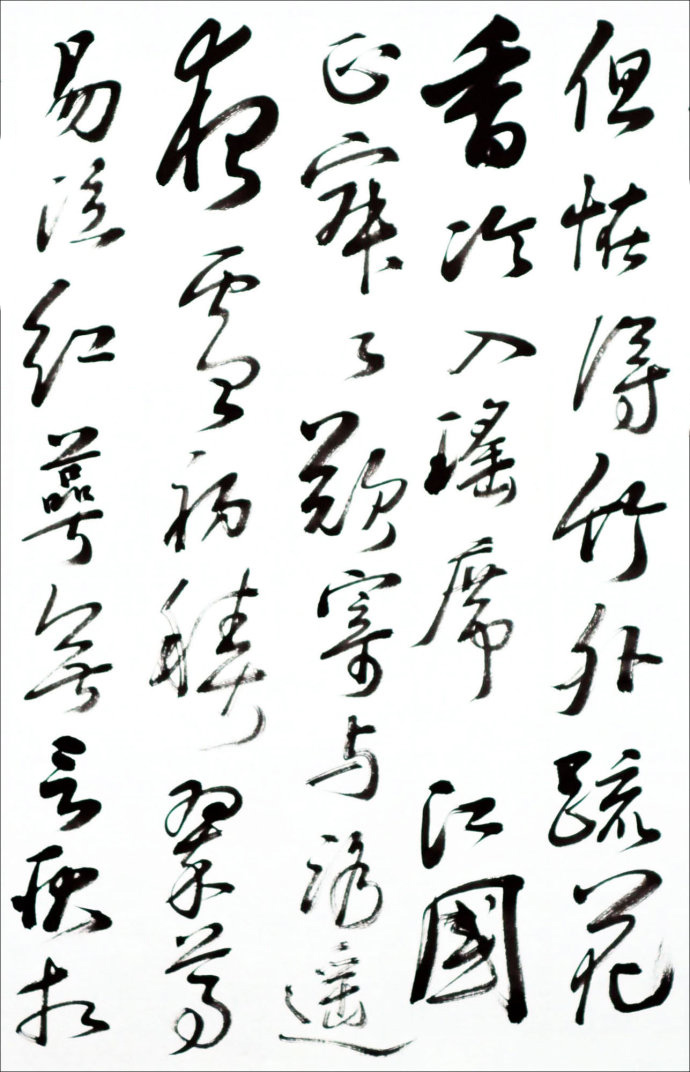 但怪得竹外疏花
香冷入瑶席 江國
正寂々歎寄与路遥
夜雪初積翠尊
易泣紅萼無言耿相